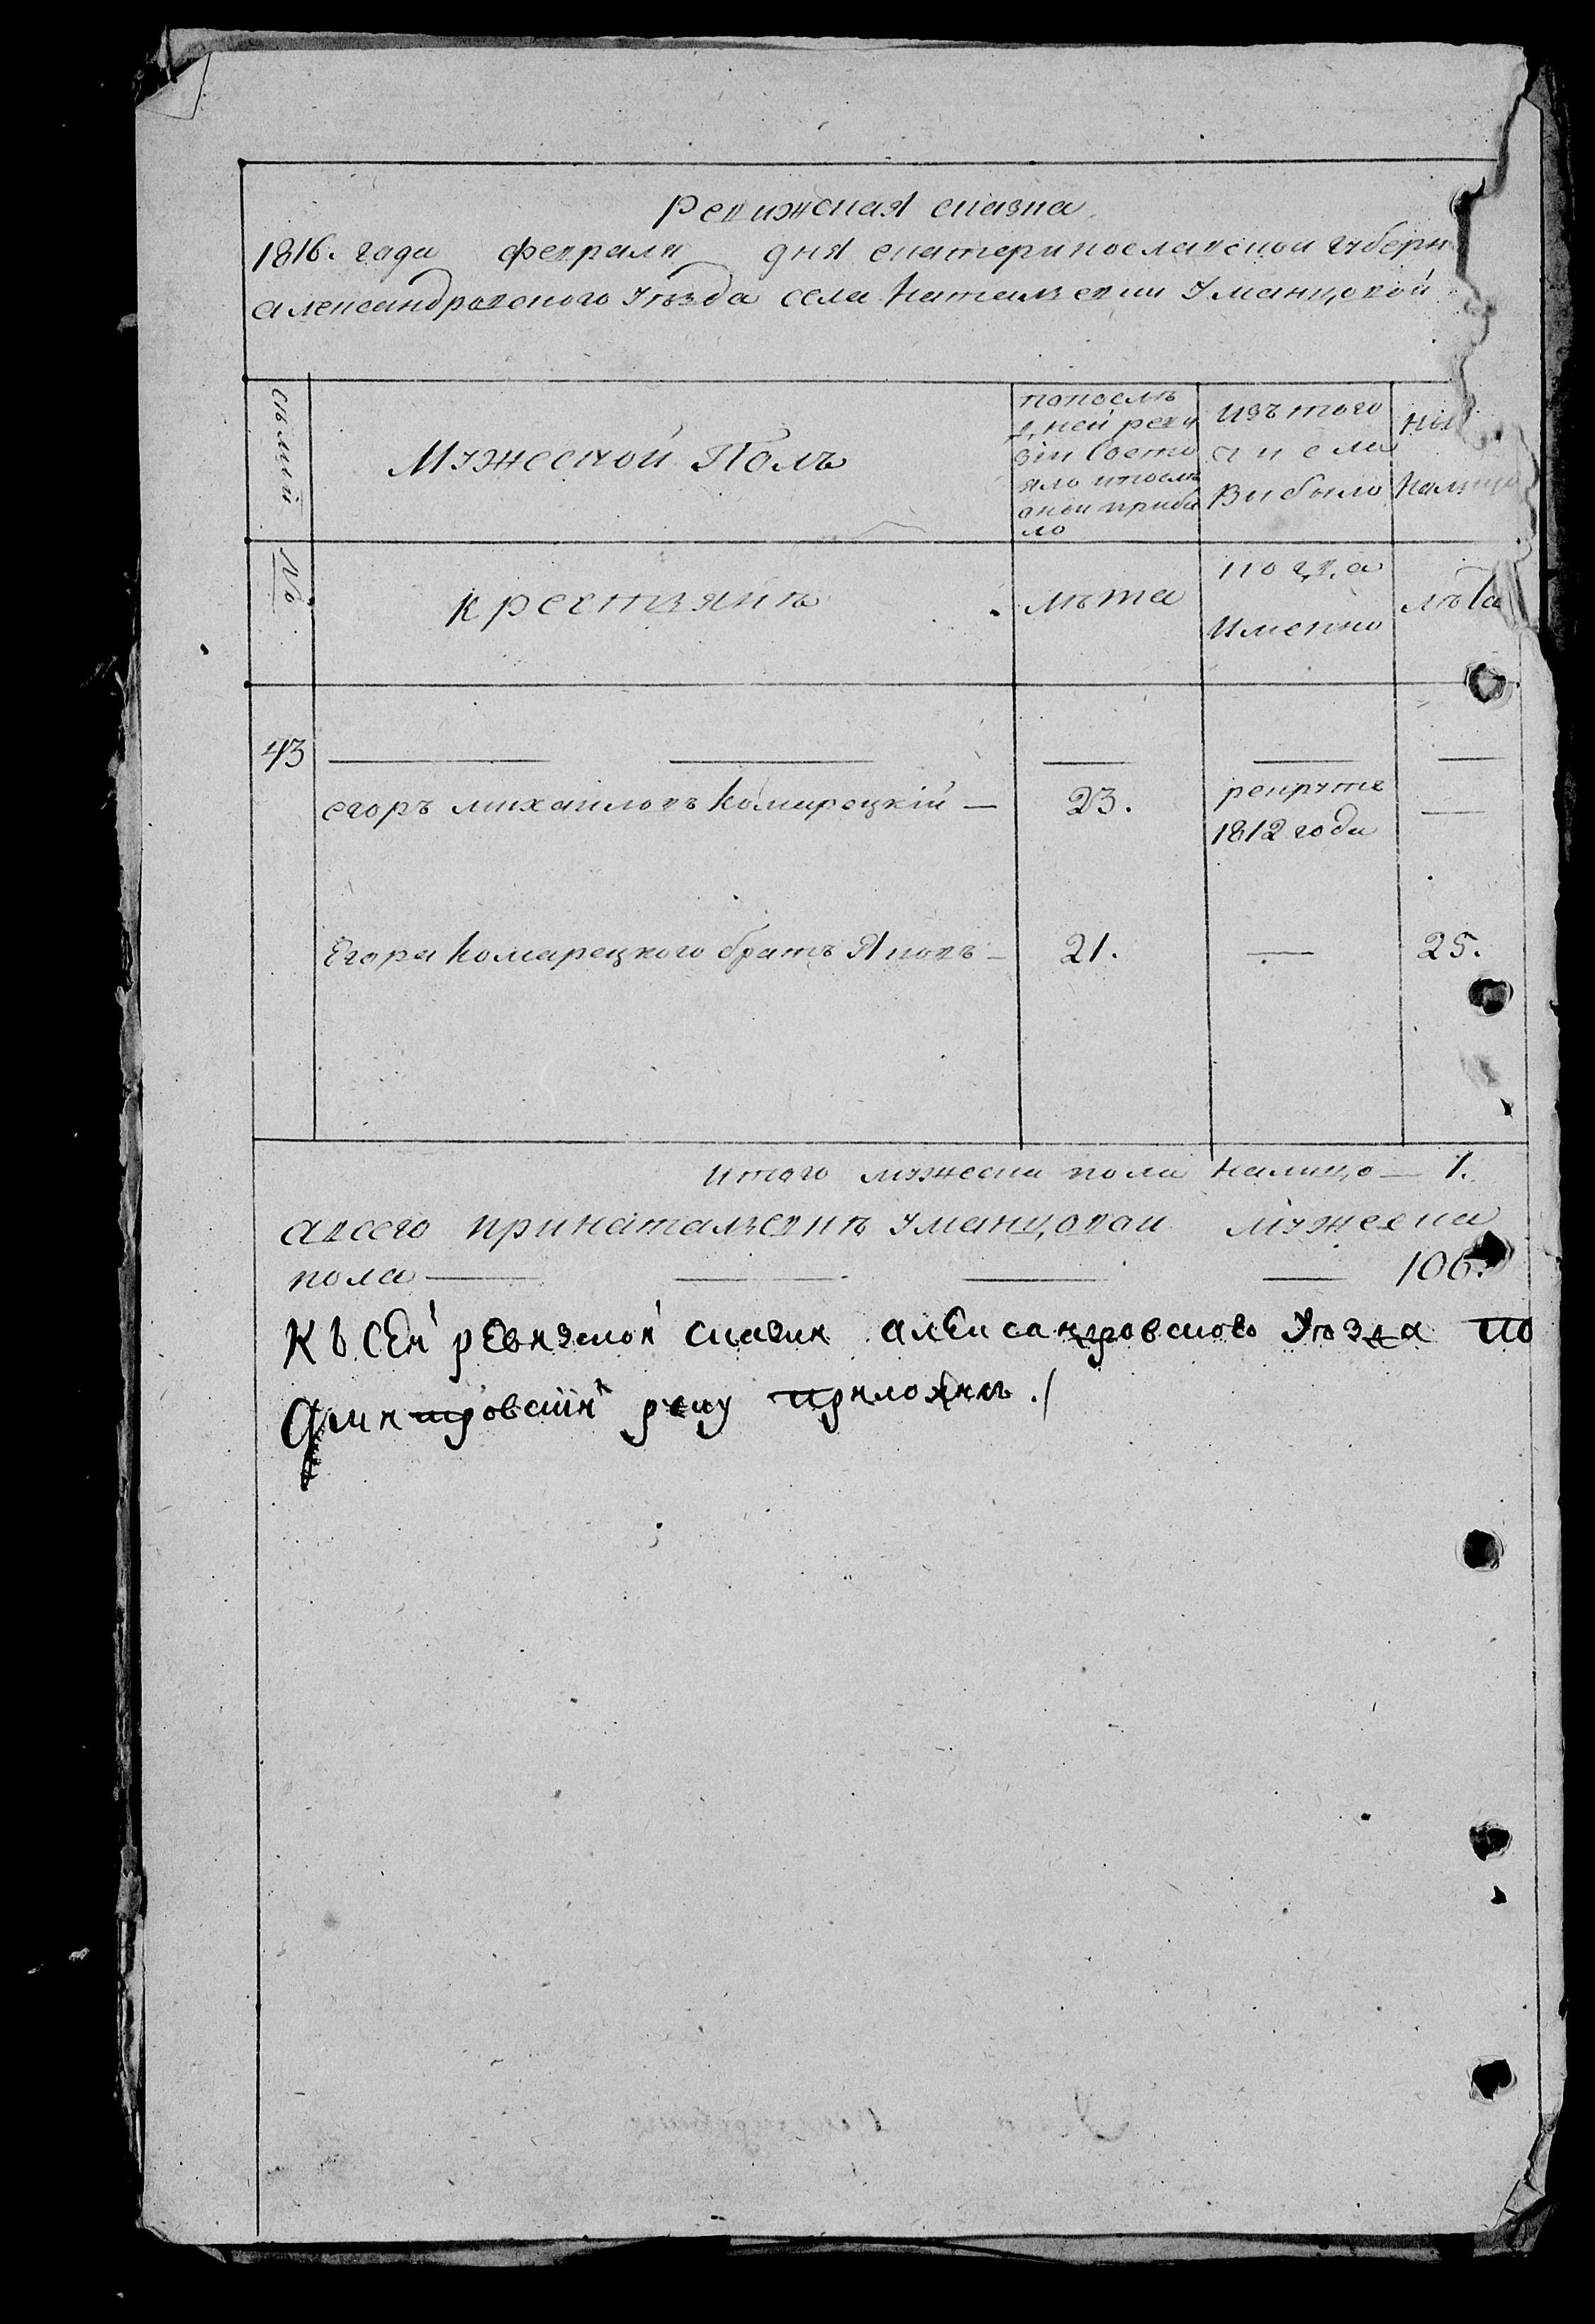 Ревижская сказка
1816. года февраля дня екатеринославской губерн
александровского уезда села Натальевки Уманцовой
семьи
Мужеской Полъ
попослѣ
дней реви
зіи Состо
яло ипослѣ
оной прибы
ло
Изъ того
числа
Выбыло
Налицо
№
крестьянъ
лѣта
когда
Именно
лѣта
43
егоръ михаиловъ Комарецкій — 23. рекруте
1812 года
—
Егора Комарецкого братъ Яковъ — 21. — 25.
Итого мужеска пола налицо — 1.
авсего принатальевкѣ уманцовой мужеска
пола — 106.
КЪ СЕй РЕвизской сказки алЕксандровсково Уезда
Дмитровскій руку приложилъ./